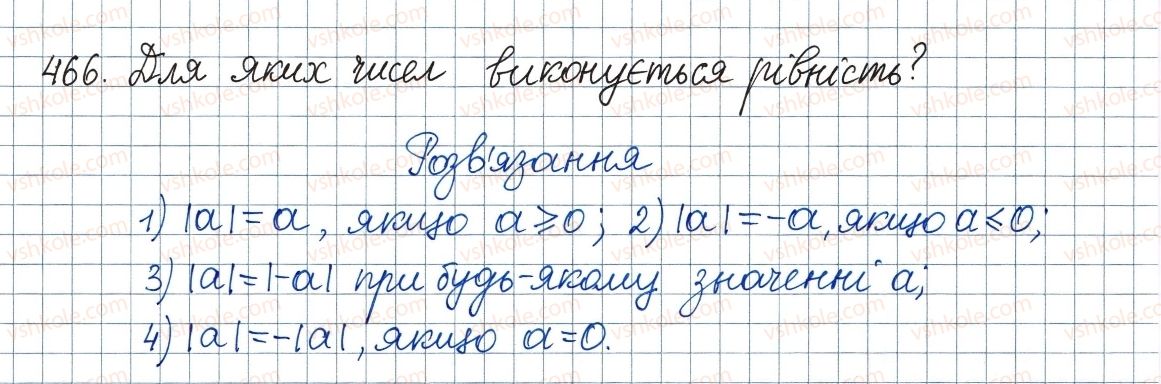 466. Для яких чисел виконується рівність?
Розв'язання
1) |a| = a, якщо a ≥ 0; 2) |a| = -a, якщо a ≤ 0;
3) |a| = |-a| при будь-якому значенні a;
4) |a| = -|a|, якщо a = 0.